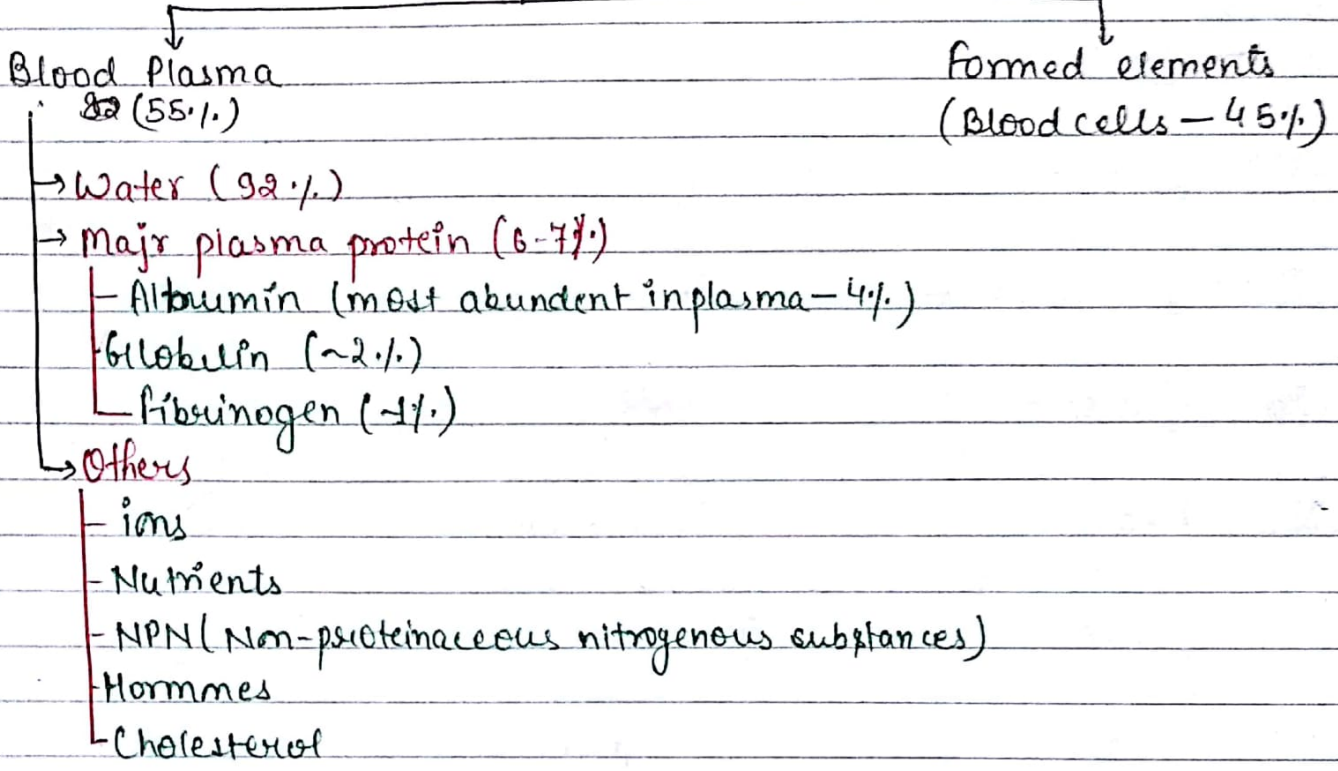 Blood Plasma
Formed elements
(55%)
(Blood cells – 45%)
→ Water (92%)
→ Majr plasma protein (6-7%)
- Albumin (most abundent in plasma – 4%)
- Globulin (~2%)
- fibrinogen (~1%)
→ Others
- ions
- Nutrients
- NPN (Non-proteinaceous nitrogenous substances)
- Hormones
- Cholesterol